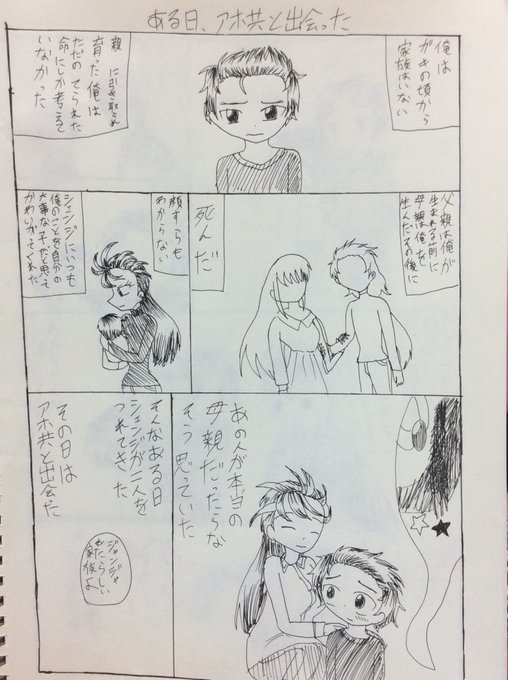 ある日、アホ共と出会った
俺は
がきの頃から
家族はいない
親　に引き取られ
育った俺は
ただのてられた
命にしか考えて
いなかった
父親は俺が
生まれる前に
母親は俺を
生んだその後に
死んだ
顔すらも
わからない
シェンジにいつも
俺のことを自分の
大事な子だと思って
かわいがてくれた
あの人が本当の
母親だいたらな
そう思っていた
そんなある日
シェンジが二人を
つれてきた
その日は
アホ共と出会た
ジャンジャ
あたらしい
家族よ